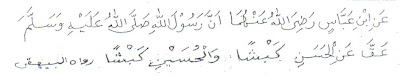 عَنِ ابْنِ عَبَّاسٍ رَضِيَ اللهُ عَنْهُمَا اَنَّ رَسُوْلَ اللهِ صَلَّى اللهُ عَلَيْهِ وَسَلَّمَ
عَقَّ عَنِ الْحَسَنِ كَبْشًا وَالْحُسَيْنِ كَبْشًا رواه البيهقى